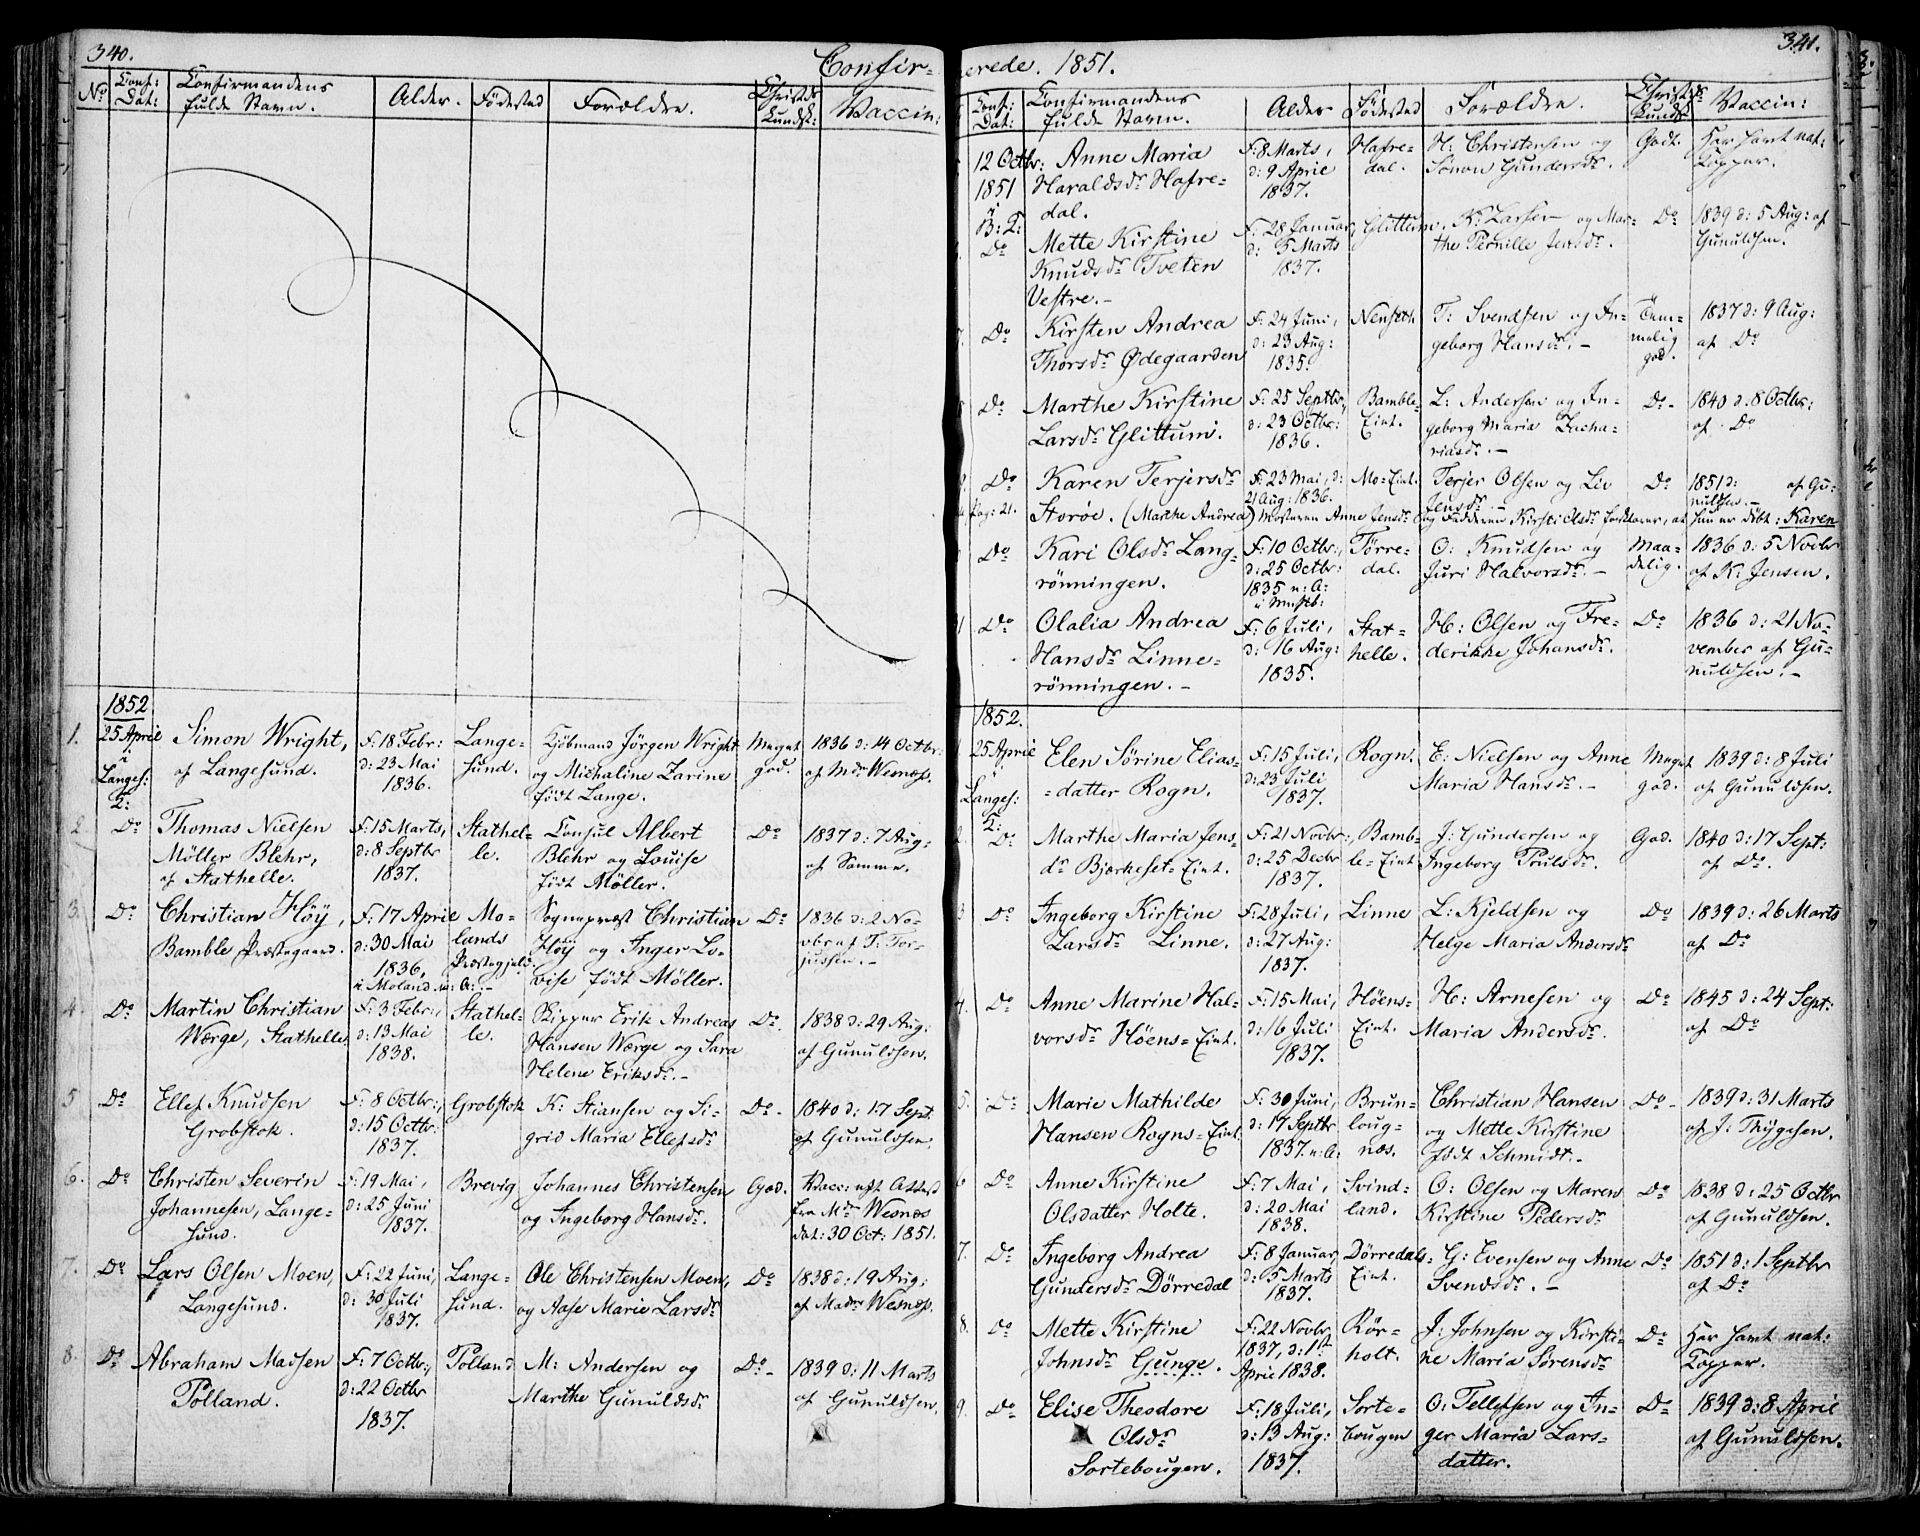 340.
Confir-
No
Conf: Dat:
Confirmandens fulde Navn.
Alder.
Fødested
Forældre.
Christds Kundsk:
Vaccin:
1852
1. 25 April i Langes: K: Simon Wright, af Langesund. F: 18 Febr: d: 23 Mai 1836. Lange-sund. Kjöbmand Jörgen Wright og Michaline Zarine født Lange. Meget god. 1836 d: 14 Octbr: af Md: Wesnæs.
2. Do Thomas Nielsen Möller Blehr, af Stathelle. F: 15 Marts, d: 8 Septbr 1837. Stathel-le. Consul Albert Blehr og Louise født Möller. Do 1837 d: 7 Aug: af Samme.
3. Do Christian Höÿ, Bamble Præstegaard. F: 17 April d: 30 Mai 1836, i Moland. n: A: Mo-lands Præstegjeld. Sognepræst Christian Höÿ og Inger Lo-vise født Möller. Do 1836 d: 2 No-vbr af T: Tor-jussen.-
4. Do Martin Christian Værge, Stathelle. F: 3 Febr:, d: 13 Mai 1838. Stathel-le. Skipper Erik Andreas Hansen Værge og Sara Helene Eriksdr.- Do. 1838 d: 29 Aug: af Gunuldsen.
5 Do Ellef Knudsen Grobstok. F: 8 Octbr:, d: 15 Octbr: 1837. Grobstok K: Stiansen og Si-grid Maria Ellefsdr Do- 1840 d: 17 Sept: af Gunuldsen.
6. Do Christen Severin Johannesen, Lange-sund. F: 19 Mai, d: 25 Juni 1837. Brevig Johannes Christensen og Ingeborg Hansdr. God. Vacc: eft Attest fra Mdr Wesnæs dat: 30 Oct: 1851.
7. Do Lars Olsen Moen, Langesund. F: 22 Juni, d: 30 Juli 1837. Lange-sund. Ole Christensen Moen, og Aase Marie Larsdr Do 1838 d: 19 Aug: af Madm Wesnæs.
8. Do Abraham Madsen Polland. F: 7 Octbr:, d: 22 Octbr 1837. Polland M: Andersen og Marthe Gunuldsdr Do- 1839 d: 11 Marts af Gunuldsen.
erede. 1851.
341.
Conf: Dat:
Confirmandens fulde Navn.
Alder
Fødested
Forældre.
Christds Kundsk
Vaccin:
12 Octbr: 1851 i B: K: Anne Maria Haraldsdr Hafre-dal. F: 8 Marts, d: 9 April 1837. Hafre-dal. H: Christensen og Simon Gundersdr. Godt. Har havt nat: Kopper.
Do Mette Kirstine Knudsdr Tveten Vestre.- F: 28 Januar, d: 5 Marts 1837. Glittum. K: Larsen og Mar-the Pernille Jensdr. Do 1839 d: 5 Aug: af Gunuldsen.
Do Kirsten Andrea Thorsdr Ødegaarden F: 24 Juni, d: 23 Aug: 1835. Nenseth T: Svendsen og In-geborg Hansdr.- Tem-melig god. 1837 d: 9 Aug: af Do
Do Marthe Kirstine Larsdr Glittum. F: 25 Septbr, d: 23 Octbr: 1836. Bamble-Eint. L: Andersen og In-geborg Maria Zacha-riasdr.- Do- 1840 d: 8 Octbr: af Do
Do Pag: 21. Karen Terjersdr Storöe. (Marthe Andrea) F: 23 Mai, d: 21 Aug: 1836. Mo-Eint. Terjer Olsen og Liv Jensdr.- Do 1851 d: af Gu-nuldsen.-
Mosteren Anne Jensdr og Fadderen Kirsti Olsdr forklarer, at hun er döbt: Karen
Do Kari Olsdr Lang-rönningen. F: 10 Octbr:, d: 25 Octbr: 1835 n: A: Törre-dal. O: Knudsen og Juri Halvorsdr.- Maa-delig. 1836 d: 5 Novbr af K: Jensen.
Do Olalia Andrea Hansdr Linne-rönningen.- F: 6 Juli, d: 16 Aug: 1835. Stat-helle. H: Olsen og Fre-derikke Johansdr. Do 1836 d: 21 No-vember af Gu-nuldsen.-
1852.
25 April i Langes: K: Elen Sörine Elias-datter Rogn. F: 15 Juli, d: 23 Juli 1837. Rogn. E: Nielsen og Anne Maria Hansdr.- Meget god. 1839 d: 8 Juli af Gunuldsen.
2. Do Marthe Maria Jens-dr Bjerkeset-Eint. F: 21 Novbr:, d: 25 Decbr 1837. Bamb-le-Eint J: Gundersen og Ingeborg Poulsdr. God. 1840 d: 17 Sept: af Do.
3 Do Ingeborg Kirstine Larsdr Linne. F: 28 Juli, d: 27 Aug: 1837. Linne L: Kjeldsen og Helge Maria Andersdr Do 1839 d: 26 Marts af Do
4. Do Anne Marine Hal-vorsdr Höens-Eint. F: 15 Mai, d: 16 Juli 1837. Höens-Eint. H: Arnesen og Maria Andersdr. Do 1845 d: 24 Sept: af Do
5. Do Marie Mathilde Hansen Rogns-Eint. F: 30 Juni, d: 17 Septbr 1837. n: A: Brun-loug-næs. Christian Hansen og Mette Kirstine født Schmidt.- Do- 1839 d: 31 Marts af J: Thÿgesen.
6 Do Anne Kirstine Olsdatter Holte. F: 7 Mai, d: 20 Mai 1838. Svind-land. O: Olsen og Maren Kirstine Pedersdr Do 1838 d: 25 Octbr af Gunuldsen.
7. Do Ingeborg Andrea Gundersdr Dörredal F: 8 Januar, d: 5 Marts 1837. Dörredals-Eint. G: Evensen og Anne Svendsdr.- Do 1851 d: 1 Septbr af Do
8. Do Mette Kirstine Johnsdr Gunge. F: 22 Novbr 1837, d: 1st April 1838. Rör-holt. J: Johnsen og Kirsti-ne Maria Sörensdr Do- Har havt nat: Kopper.
9. Do Elise Theodore Olsdr Sortebougen. F: 18 Juli, d: 13 Aug: 1837. Sorte-bougen O: Tellefsen og In-ger Maria Lars-datter. Do 1839 d: 8 April af Gunuldsen.